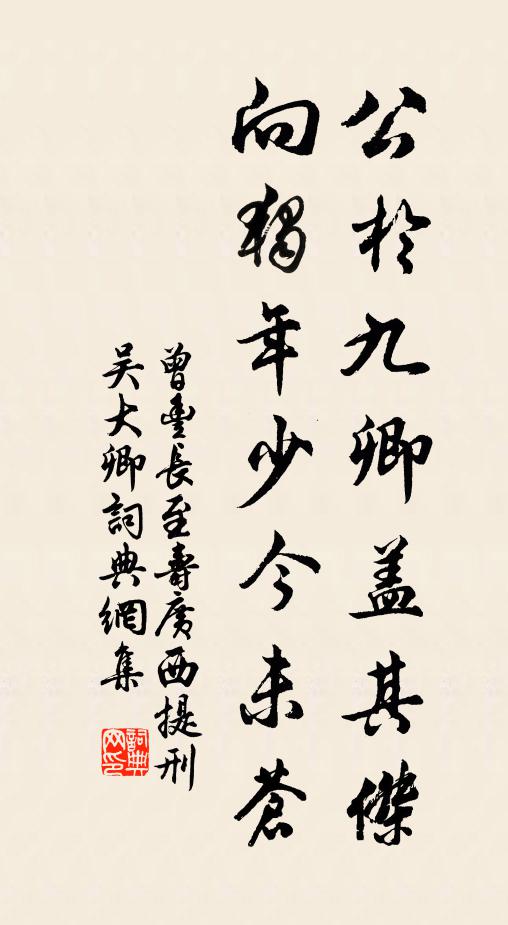 公於九卿盖其傑
向獨年少今未蒼
曾豊長至壽廣西提刑
吴大卿詞典網集
詞典網印